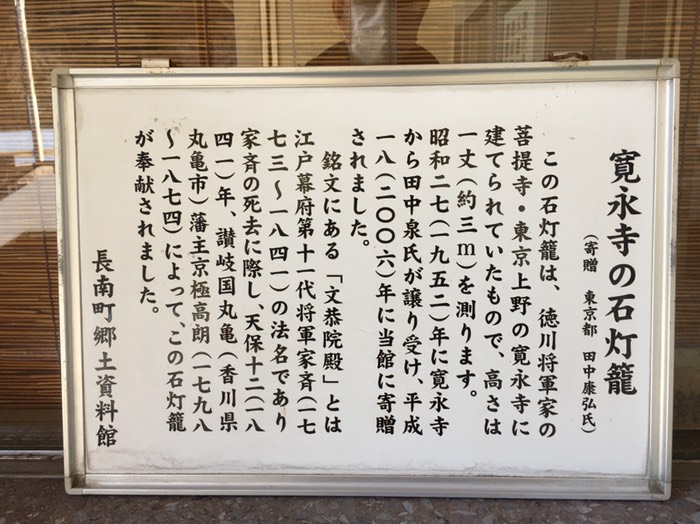 寛永寺の石灯籠
(寄贈 東京都 田中康弘氏)
この石灯籠は、徳川将軍家の
菩提寺・東京上野の寛永寺に
建てられていたもので、高さは
一丈(約三m)を測ります。
昭和二七(一九五二)年に寛永寺
から田中泉氏が譲り受け、平成
一八(二〇〇六)年に当館に寄贈
されました。
銘文にある「文恭院殿」とは
江戸幕府第十一代将軍家斉(一七
七三〜一八四一)の法名であり
家斉の死去に際し、天保十二(一八
四一)年、讃岐国丸亀(香川県
丸亀市)藩主京極高朗(一七九八
〜一八七四)によって、この石灯籠
が奉献されました。
長南町郷土資料館